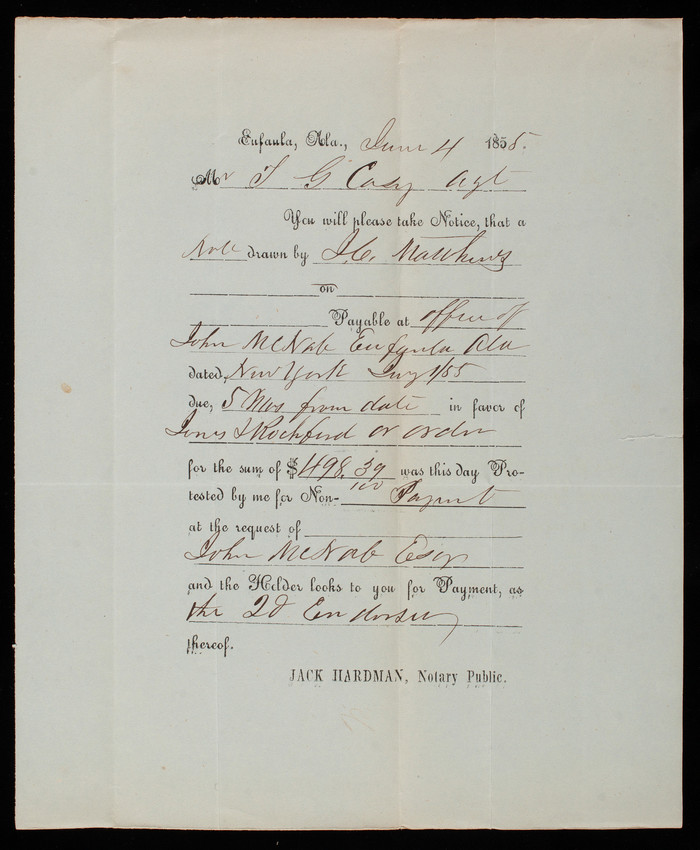 Eufaula, Ala., June 4 1855.
Mr T G Casy agt
You will please take Notice, that a
Note drawn by J. C. Matthews
on
Payable at office of
John McNab Eufaula Ala
dated, New York Jany 1/55
due, 5 Mos from date in favor of
Jones & Rochford or order
for the sum of $ 498.39/100 was this day Pro-
tested by me for Non- Paymt
at the request of
John McNab Esqr
and the Holder looks to you for Payment, as
the 2d Endorser
thereof.
JACK HARDMAN, Notary Public.